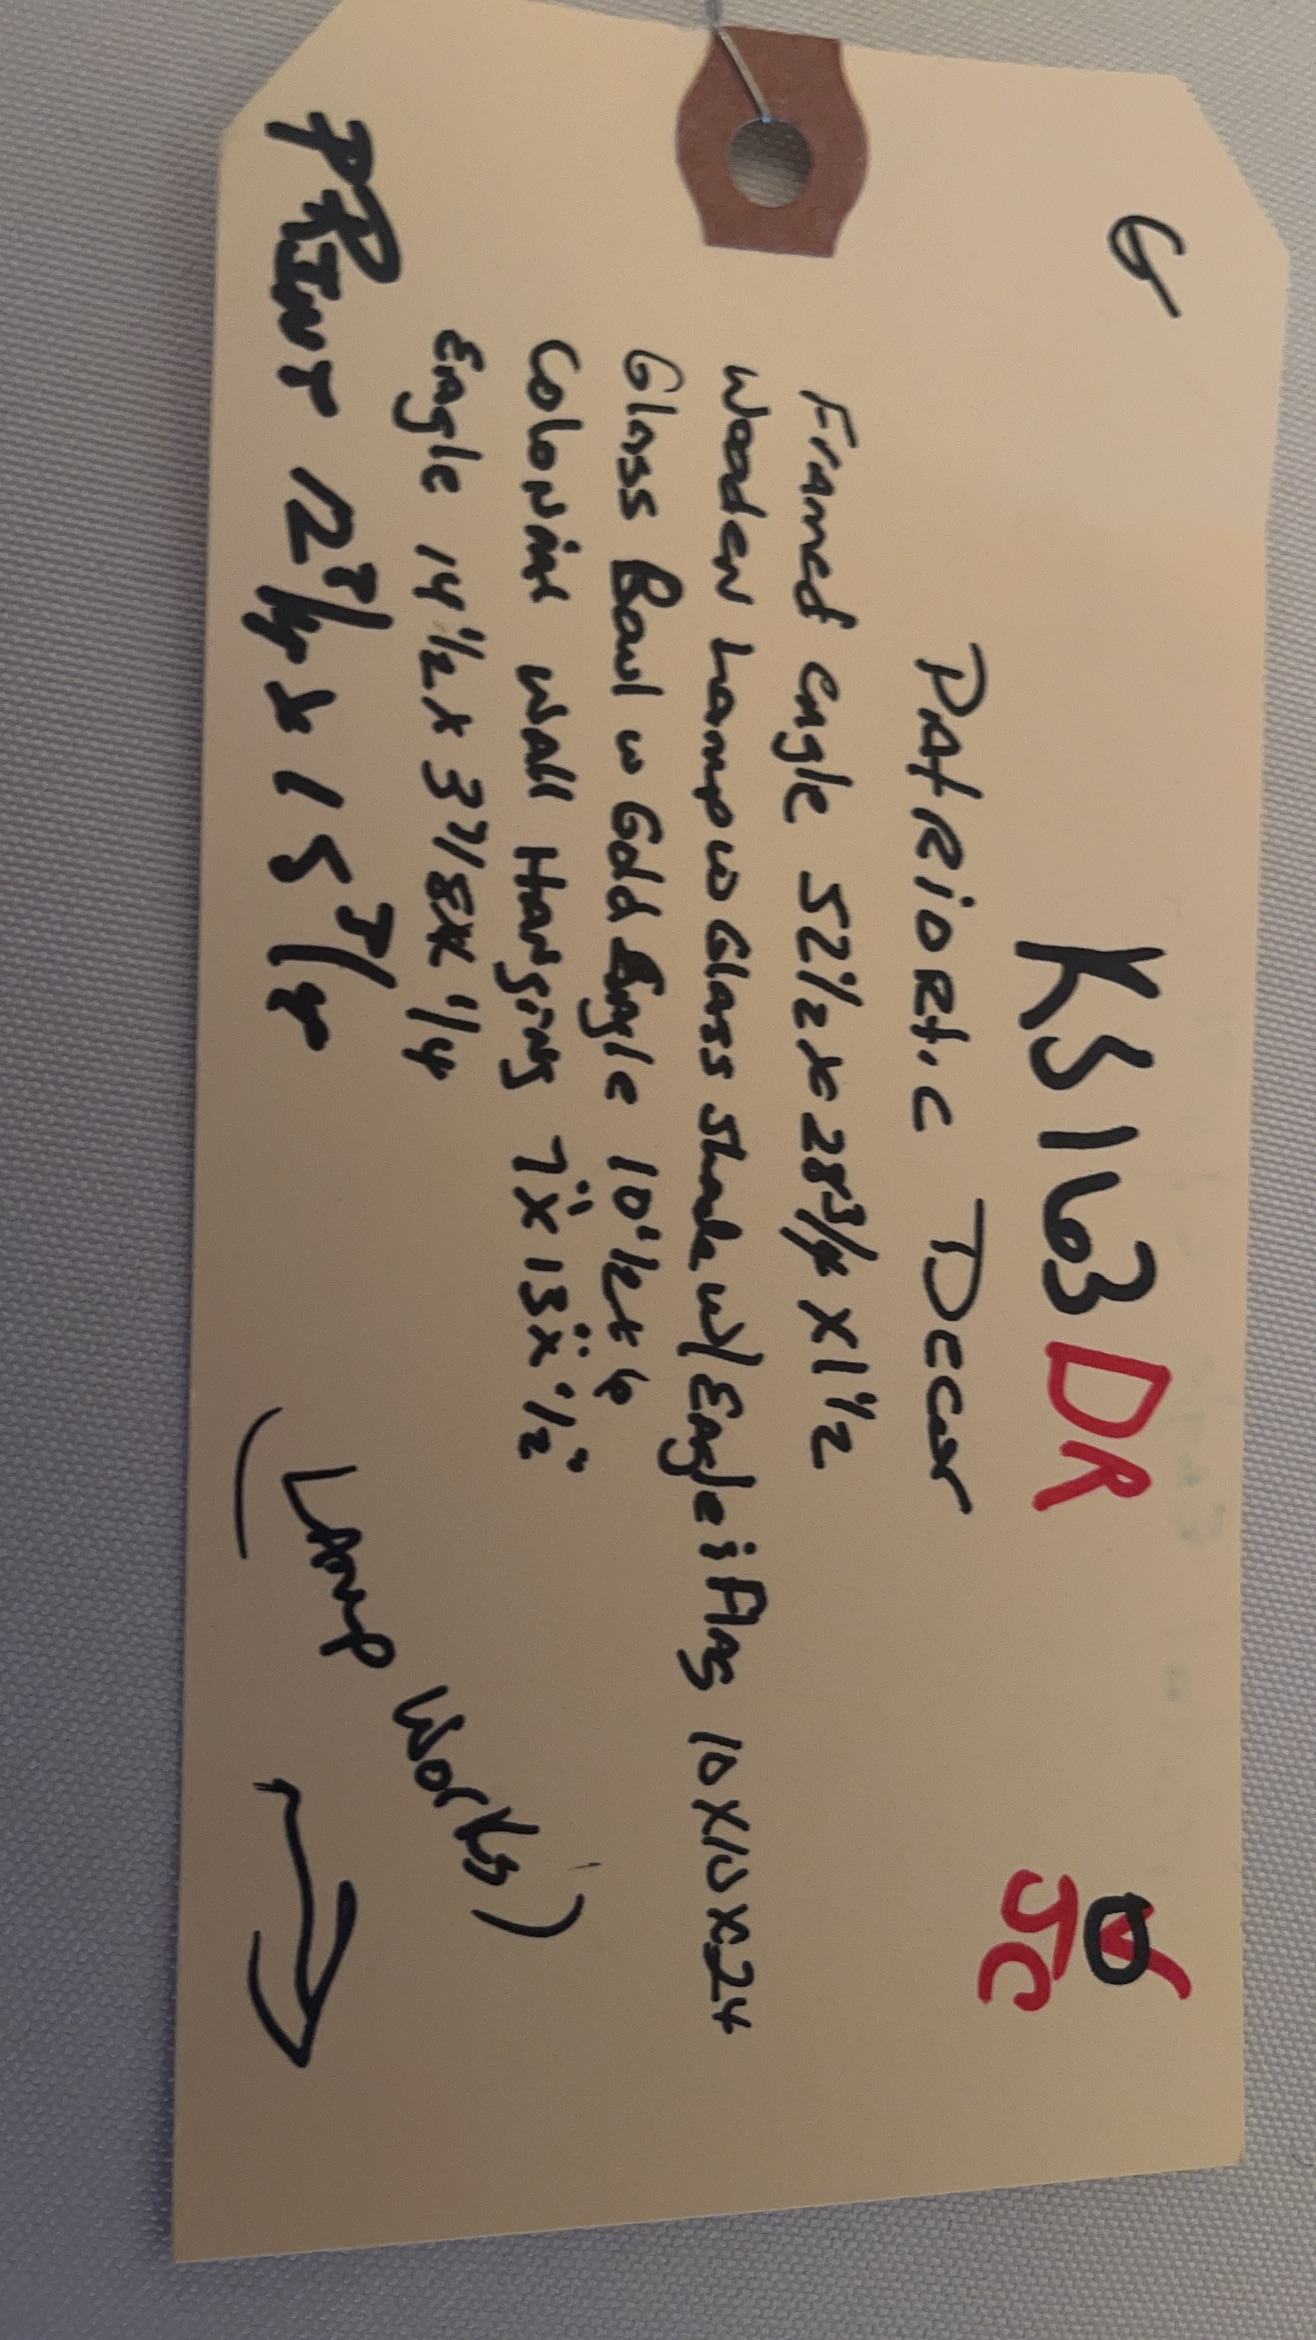 G
KS163 DR
JC
PAtRiOtic Decor
Framed eagle 52 1/2 x 28 3/4 x 1 1/2
Wooden Lamp w Glass Shade w/ Eagle ; Flag 10 x 10 x 24
Glass Bowl w Gold Eagle 10 1/2 x 6
Colonial Wall Hanging 7" x 13" x 1/2"
Eagle 14 1/2 x 3 7/8 x 1/4
PRINT 12 x 15
(Lamp Works)